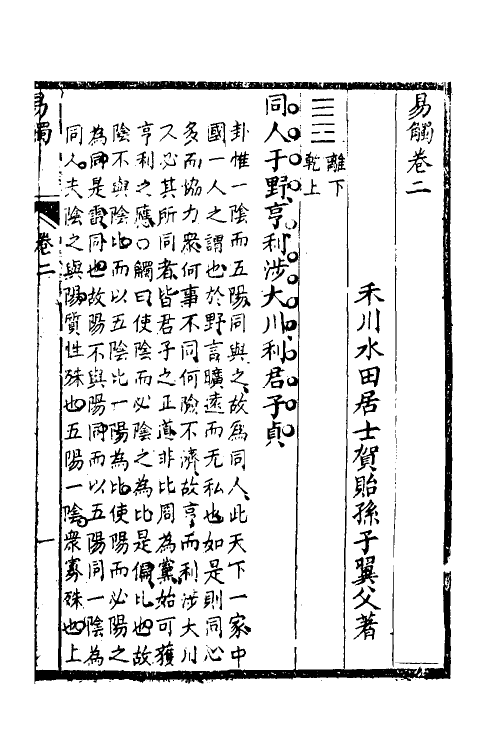 易觸卷二
禾川水田居士賀貽孫子翼父著
離下
乾上
同人于野亨利涉大川利君子貞
卦惟一陰而五陽同與之故為同人此天下一家中
國一人之謂也於野言曠遠而无私也如是則同心
多而協力衆何事不同何險不濟故亨而利涉大川
又必其所同者皆君子之正道非比周為黨始可獲
亨利之應○觸曰使陰而必陰之為比是偏比也故
陰不與陰比而以五陰比一陽為比使陽而必陽之
為同是雷同也故陽不與陽同而以五陽同一陰為
同人夫陰之與陽質性殊也五陽一陰衆寡殊也上
易觸
卷二
一